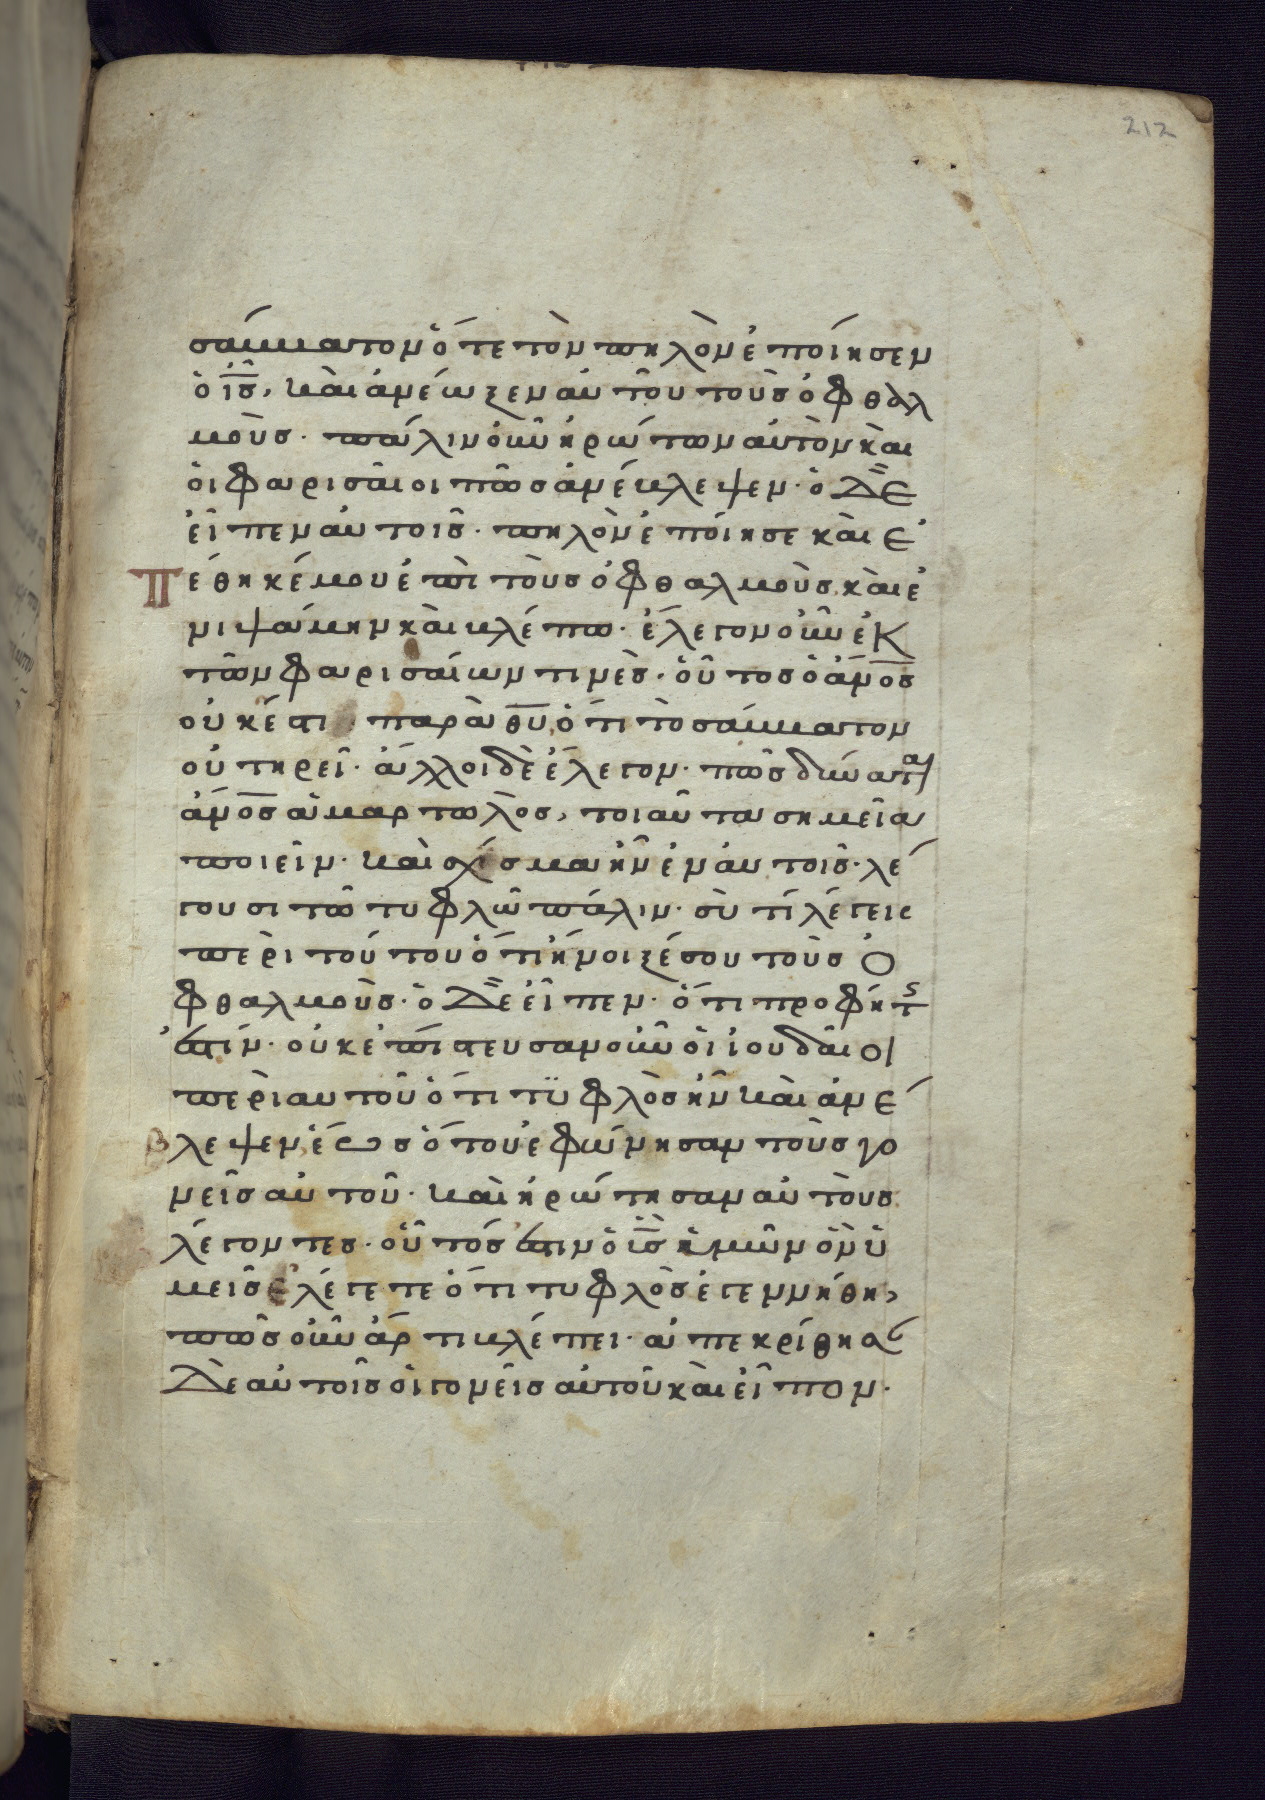 212
σάββατον ὅτε τὸν πηλὸν ἐποίησεν
ὁ ι̅ς̅, καὶ ἀνέωξεν αὐτοῦ τοὺς ὀφθαλ
μοὺς· πάλιν οὖν ἠρώτων αὐτὸν καὶ
οἱ φαρισαῖοι πῶς ἀνέβλεψεν· ὁ δὲ
εἶπεν αὐτοῖς· πηλὸν ἐποίησε καὶ ἐ
πέθηκέ μου ἐπὶ τοὺς ὀφθαλμοὺς καὶ ἐ
νιψάμην καὶ βλέπω· ἔλεγον οὖν ἐκ
τῶν φαρισαίων τινὲς· οὗτος ὁ α̅ν̅ο̅ς̅
οὐκ ἔστι παρὰ θ̅υ̅, ὅτι τὸ σάββατον
οὐ τηρεῖ· ἄλλοι δὲ ἔλεγον· πῶς δύναται
α̅ν̅ο̅ς̅ ἁμαρτωλὸς, τοιαῦτα σημεῖα
ποιεῖν· καὶ σχίσμα ἦν ἐν αὐτοῖς· λέ
γουσι τῶ τυφλῶ πάλιν· σὺ τί λέγεις
περὶ τούτου ὅτι ἤνοιξέ σου τοὺς ὀ
φθαλμοὺς· ὁ δὲ εἶπεν· ὅτι προφήτης
ἐστίν· οὐκ ἐπίστευσαν οὖν οἱ ἰουδαῖοι
περὶ αυτοῦ ὅτι τϋφλὸς ἦν καὶ ἀνέ
βλεψεν ἕως ὅτου ἐφώνησαν τοὺς γο
νεῖς αὐτοῦ· καὶ ἠρώτησαν αὐτοὺς
λέγοντες· οὗτός ἐστιν ὁ υ̅ς̅ ἡμῶν ὃν ὑ
μεῖς λέγετε ὅτι τυφλὸς ἐγεννήθη,
πῶς οὖν ἄρτι βλέπει· ἀπεκρίθησαν
δὲ αὐτοῖς οἱ γονεῖς αὐτοῦ καὶ εἶπον·